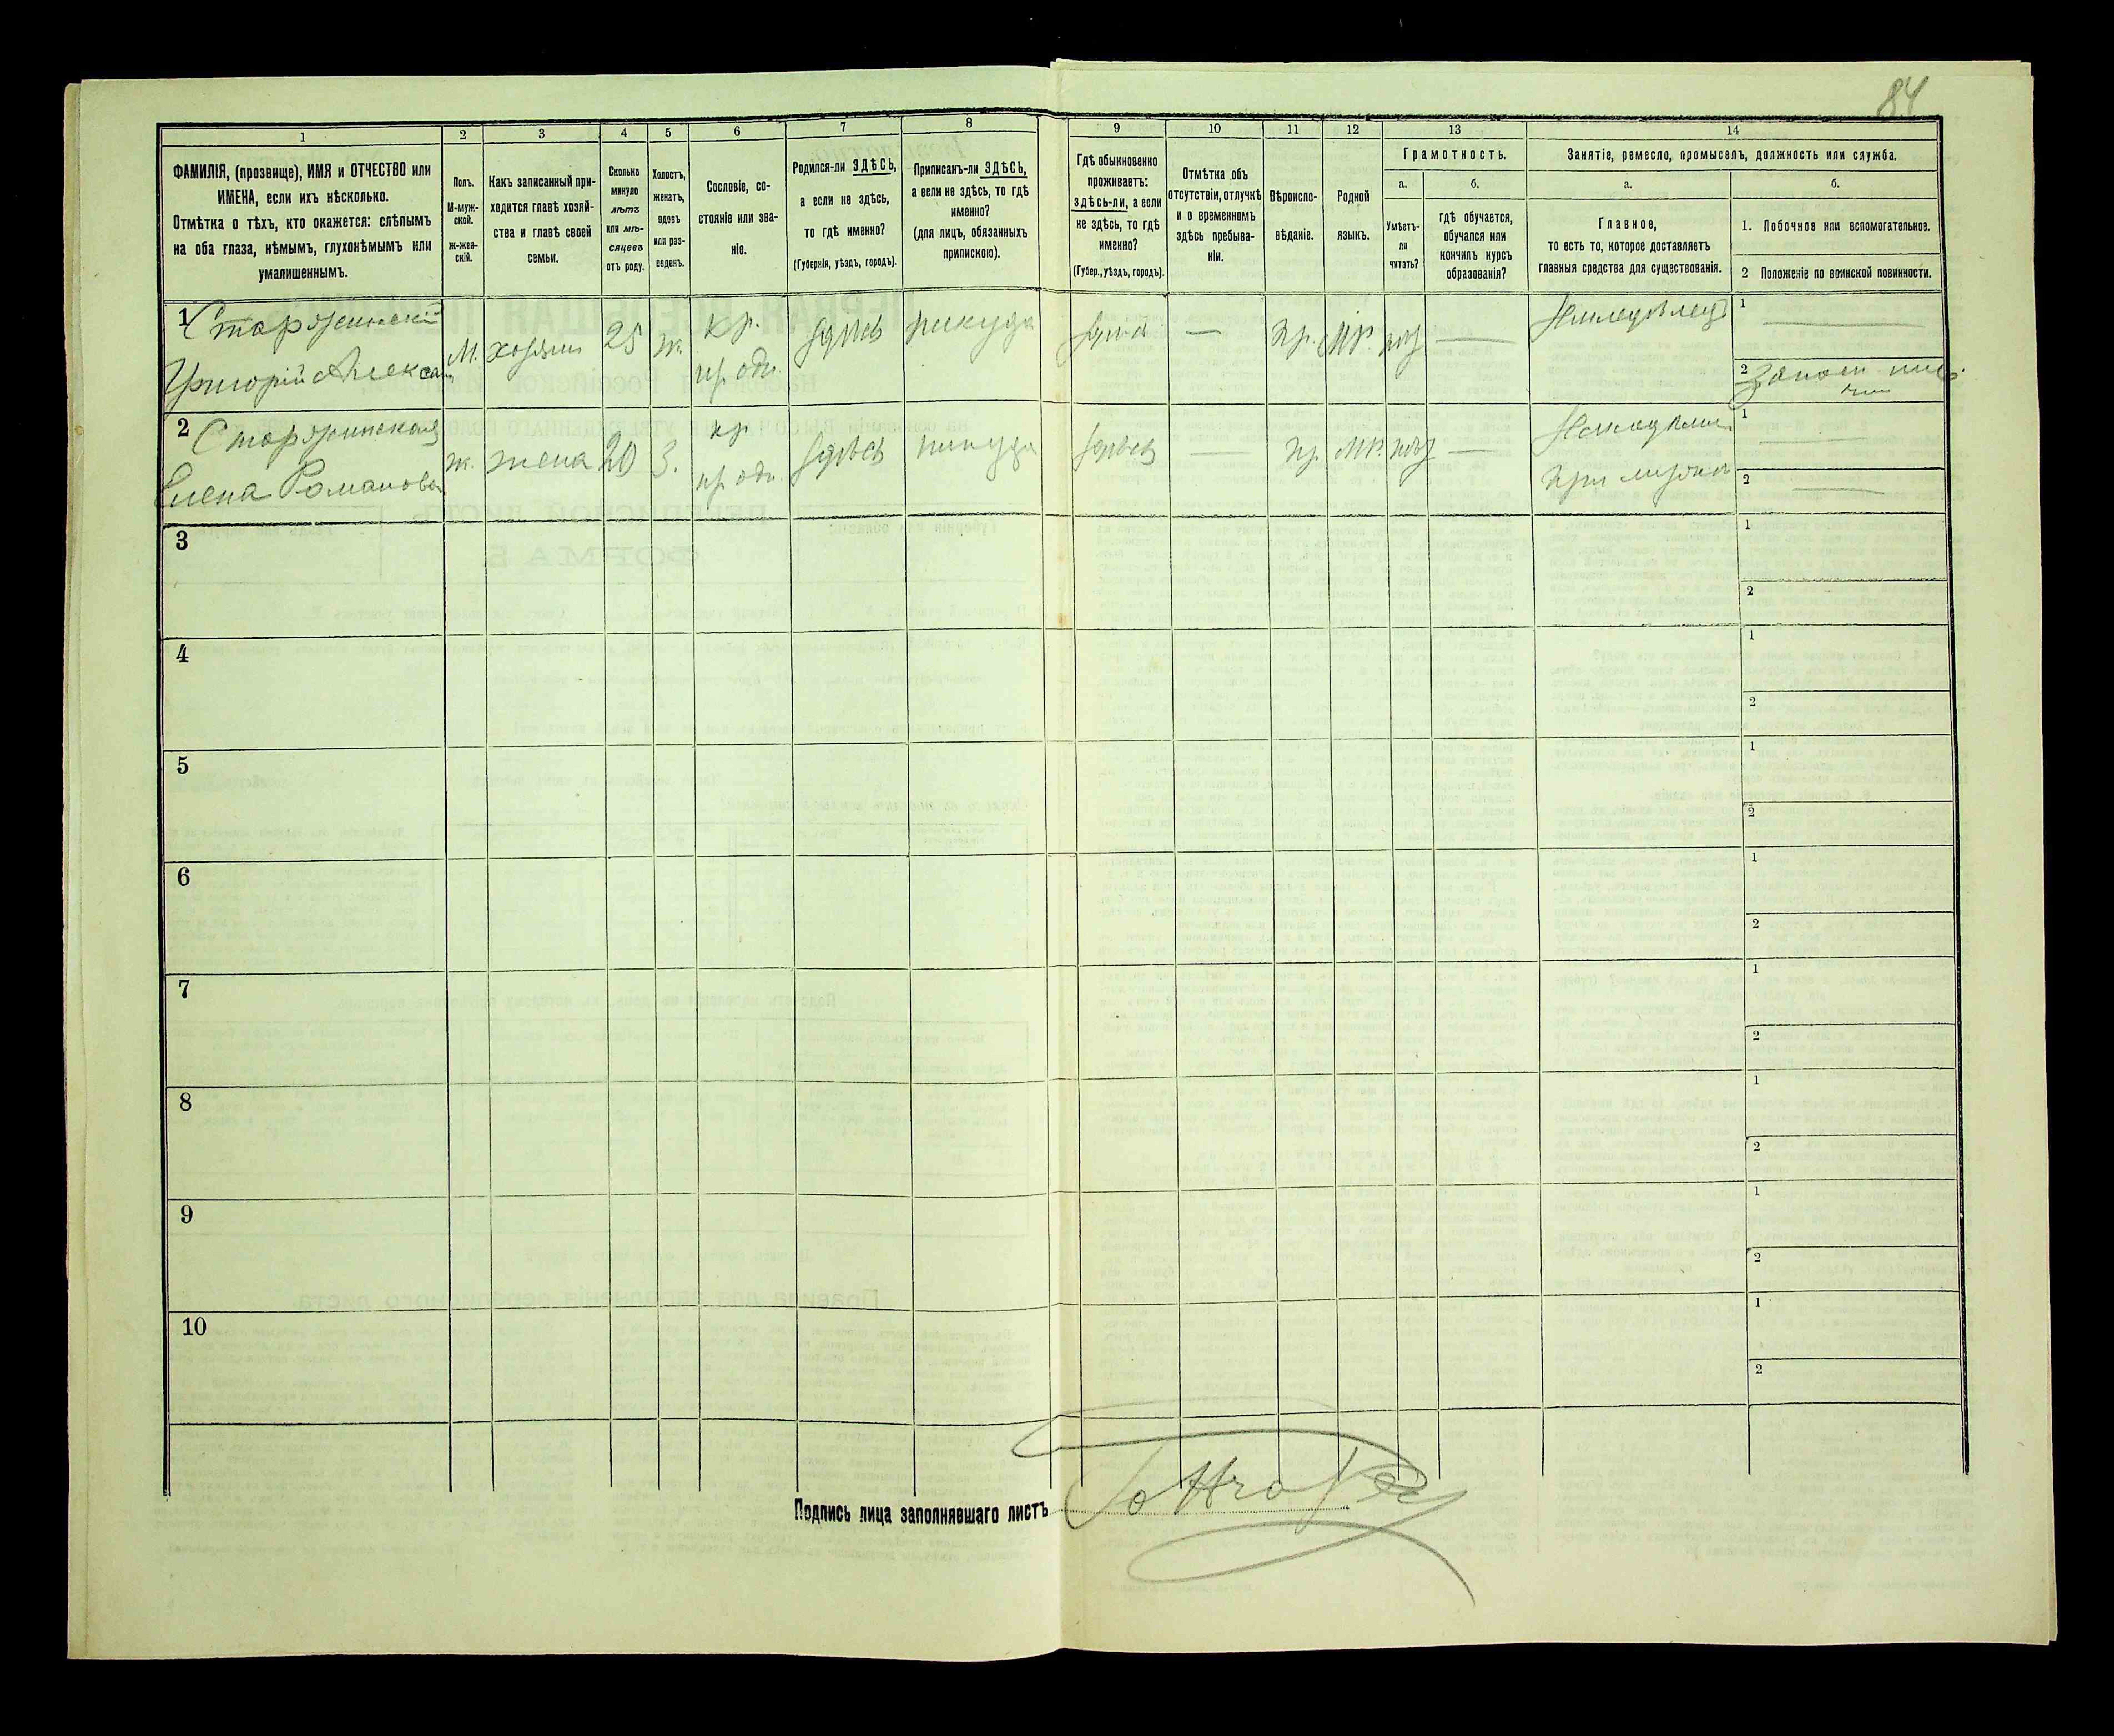 84
1 2 3 4 5 6 7 8 9 10 11 12 13 14
ФАМИЛІЯ, (прозвище), ИМЯ и ОТЧЕСТВО или
ИМЕНА, если ихъ нѣсколько.
Отмѣтка о тѣхъ, кто окажется: слѣпымъ
на оба глаза, нѣмымъ, глухонѣмымъ или
умалишеннымъ.
Полъ.
М-муж-
ской.
Ж-жен-
скій.
Какъ записанный при-
ходится главѣ хозяй-
ства и главѣ своей
семьи.
Сколько
минуло
лѣтъ
или мѣ-
сяцевъ
отъ роду.
Холостъ,
женатъ,
вдовъ
или раз-
веденъ.
Сословіе, со-
стояніе или зва-
ніе.
Родился-ли ЗДѢСЬ,
а если не здѣсь,
то гдѣ именно?
(Губернія, уѣздъ, городъ).
Приписанъ-ли ЗДѢСЬ,
а если не здѣсь, то гдѣ
именно?
(для лицъ, обязанныхъ
припискою).
Гдѣ обыкновенно
проживаетъ:
ЗДѢСЬ-ли, а если
не здѣсь, то гдѣ
именно?
(Губер., уѣздъ, городъ).
Отмѣтка объ
отсутствіи, отлучкѣ
и о временномъ
здѣсь пребыва-
ніи.
Вѣроиспо-
вѣданіе.
Родной
языкъ.
Грамотность.
а. б.
Умѣетъ-
ли
читать?
гдѣ обучается,
обучался или
кончилъ курсъ
образованія?
Занятіе, ремесло, промыселъ, должность или служба.
а. б.
Главное,
то есть то, которое доставляетъ
главныя средства для существованія.
1. Побочное или вспомогательное.
2 Положеніе по воинской повинности.
1
Григорій Алексан
М. хозяин 25 ж. кр. здѣсь — Пр. МР.
1
2
2
Елена Романова
ж. жена 20 З. кр здѣсь здѣсь — пр МР. —
При мужѣ
1
2
3 1
2
4 1
2
5 1
2
6 1
2
7 1
2
8 1
2
9 1
2
10 1
2
Подпись лица заполнявшаго листъ